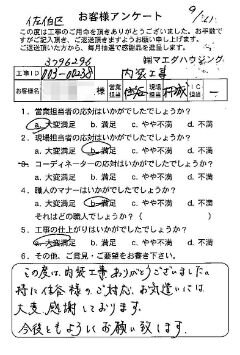 佐伯区
お客様アンケート
9/21
この度は工事のご用命を頂きありがとうございました。お手数で
すがご記入頂き、ご返送頂きますようお願い申し上げます。
ご返送頂いた方から、毎月抽選で感謝品を進呈します。
3096296
㈱マエダハウジング
工事ID 003-00238 内装工事
お客様名 様 営業担当 現場担当 IC担当
1. 営業担当者の応対はいかがでしたでしょうか?
a. 大変満足 b. 満足 c. やや不満 d. 不満
2. 現場担当者の応対はいかがでしたでしょうか?
a. 大変満足 b. 満足 c. やや不満 d. 不満
3. コーディネーターの応対はいかがでしたでしょうか?
a. 大変満足 b. 満足 c. やや不満 d. 不満
4. 職人のマナーはいかがでしたでしょうか?
a. 大変満足 b. 満足 c. やや不満 d. 不満
それはどの職人でしょうか?( )
5. 工事の仕上がりはいかがでしたでしょうか?
a. 大変満足 b. 満足 c. やや不満 d. 不満
6. その他、ご意見・ご要望をお書き下さい。
この度は、内装工事ありがとうございました。
特に住谷様のご対応、お気遣いには
大変、感謝しております。
今後ともよろしくお願い致します。